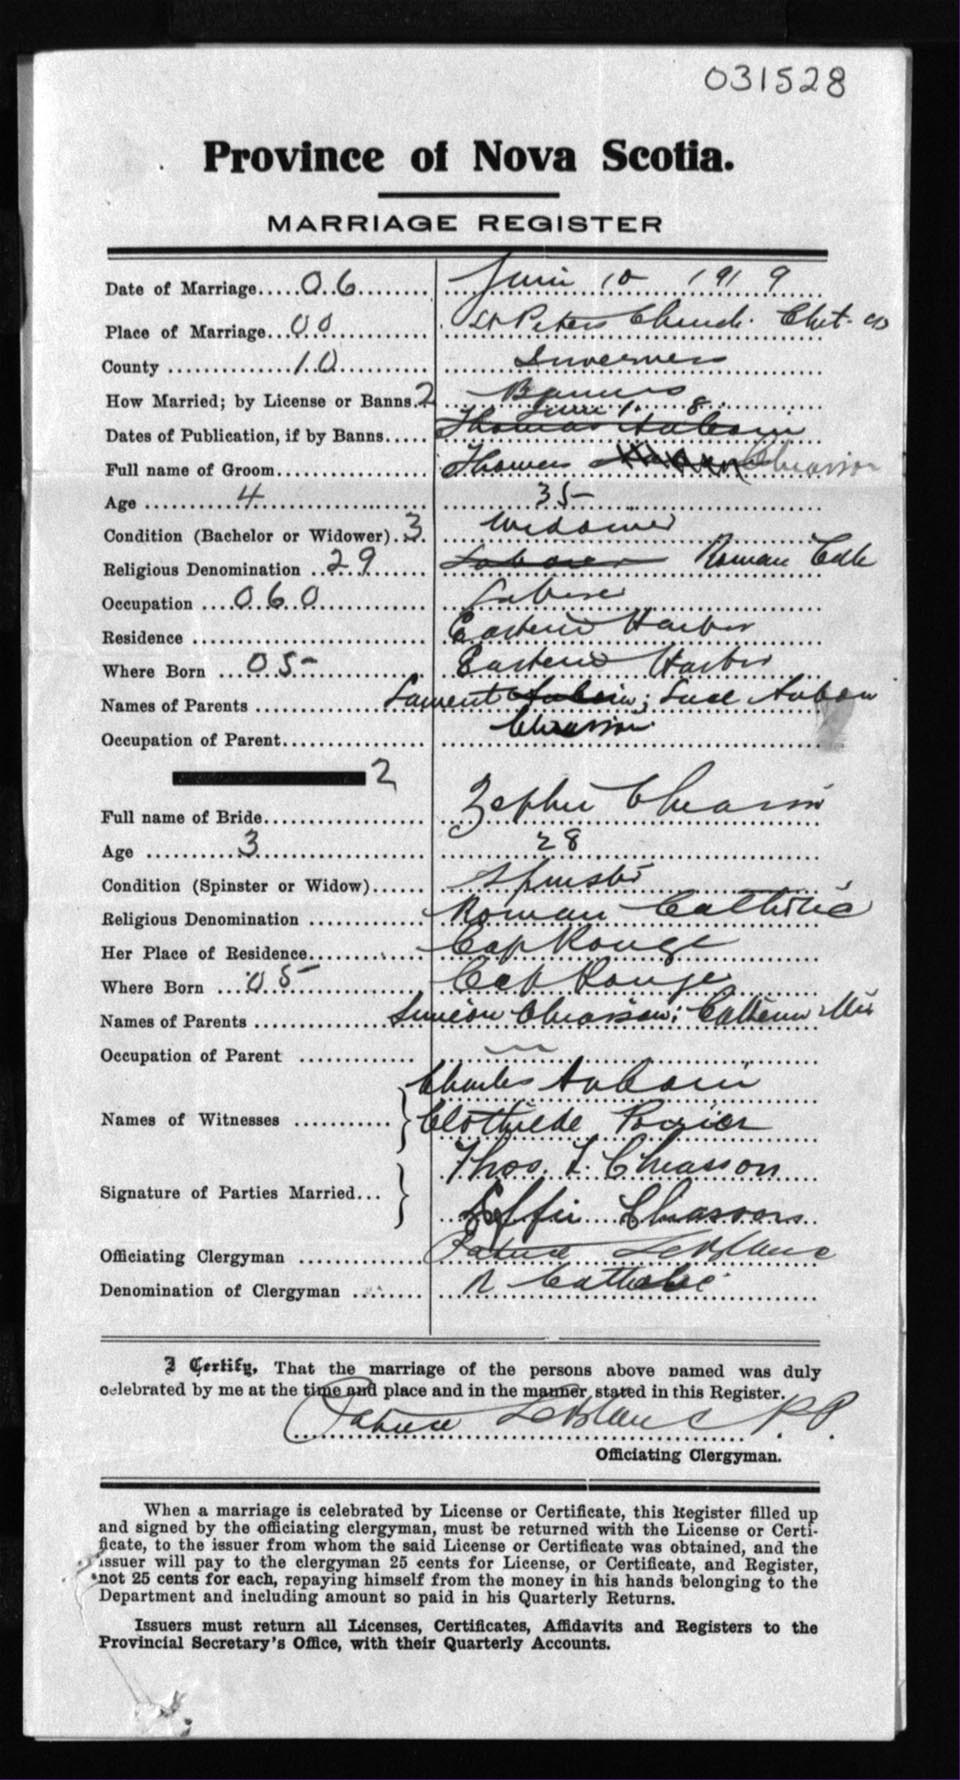 031528
Province of Nova Scotia.
MARRIAGE REGISTER
Date of Marriage.....06........ June 10 1919
Place of Marriage...00......... St Peters Church. Chet.
County .............10......... Inverness
How Married; by License or Banns.2 Banns
Dates of Publication, if by Banns..... June 1. 8. Thomas Aucoin
Full name of Groom.................. Thomas Chiasson
Age ..........4.................... 35
Condition (Bachelor or Widower).3. Widower
Religious Denomination ..29...... Laborer Roman Cath
Occupation ....060............. Laborer
Residence ........................... Eastern Harbor
Where Born ...05............... Eastern Harbor
Names of Parents .................. Laurent Aucoin; Luce Aucoin
Occupation of Parent............... Chiasson
2
Full name of Bride.................. Zephie Chiasson
Age ..........3.................... 28
Condition (Spinster or Widow)...... Spinster
Religious Denomination ............ Roman Catholic
Her Place of Residence............. Cap Rouge
Where Born ...05............... Cap Rouge
Names of Parents .................. Simeon Chiasson;
Occupation of Parent ..............
Charles Aucoin
Names of Witnesses ............ Clothilde Poirier
Thos. L. Chiasson
Signature of Parties Married... Zeffie Chiasson
Officiating Clergyman ............. Patrice LeBlanc
Denomination of Clergyman ........ R Catholic
I Certify, That the marriage of the persons above named was duly
celebrated by me at the time and place and in the manner stated in this Register.
Patrice LeBlanc P.P.
Officiating Clergyman.
When a marriage is celebrated by License or Certificate, this Register filled up
and signed by the officiating clergyman, must be returned with the License or Certi-
ficate, to the issuer from whom the said License or Certificate was obtained, and the
issuer will pay to the clergyman 25 cents for License, or Certificate, and Register,
not 25 cents for each, repaying himself from the money in his hands belonging to the
Department and including amount so paid in his Quarterly Returns.
Issuers must return all Licenses, Certificates, Affidavits and Registers to the
Provincial Secretary's Office, with their Quarterly Accounts.